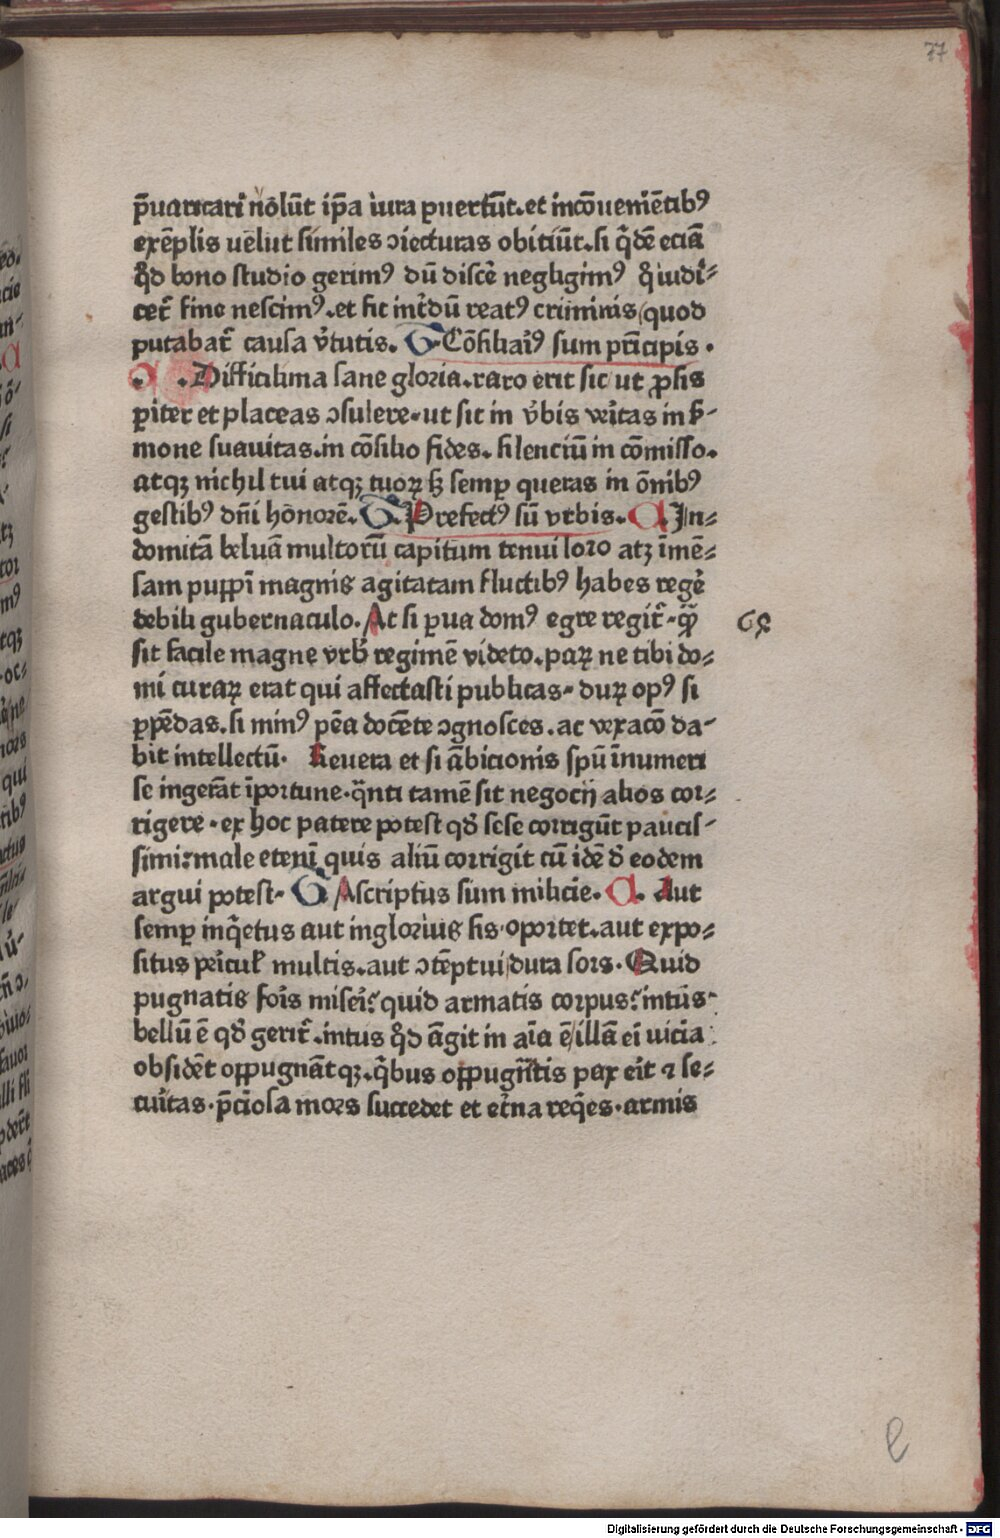 77
p̄uaricari nolūt ip̄a iura puertūt.et incōueniētibꝯ
exēplis uelut similes ɔiecturas obiciūt.si q̄dē eciā
qd̄ bono studio gerimꝯ dū discē negligimꝯ q̄ iudi-
cet᷑ fine nescimꝯ.et sic int̄dū reatꝯ criminis quod
putabat᷑ causa v̄tutis. G Cōsiliariꝯ sum pricipis.
A .Difficilima sane gloria.raro erit sic ut ꝓsis
ꝑiter et placeas ɔsulere.ut sit in v̄bis veritas in s̄-
mone suauitas.in cōsilio fides. silenciū in cōmisso.
atqꝫ nichil tui atqꝫ tuoꝝ sꝫ semꝑ queras in ōnibꝯ
gestibꝯ dn̄i honorē. G.Prefectꝯ sū vrbis. A. In-
domitā beluā multorū capitum tenui loro atꝫ īmē-
sam puppī magnis agitatam fluctibꝯ habes regē
debili gubernaculo.At si ꝑua domꝯ egre regit᷑.qꝫ̄
sit facile magne vrb̄ regimē videto.paꝝ ne tibi do-
mi curaꝝ erat qui affectasti publicas. duꝝ opꝯ si
ꝑpēdas.si minꝯ pēa docēte ɔgnosces.ac vexacō da-
bit intellectū. Reuera et si ābicionis spū īnumeri
se ingerāt īportune.q̄nti tamē sit negocij alios cor-
rigere.ex hoc patere potest qd̄ sese corrigūt paucis-
simi:male etenī quis aliū corrigit cū idē d̄ eodem
argui potest. G Ascriptus sum milicie. A. Aut
semꝑ inq̄etus aut inglorius sis oportet.aut expo-
situs pericul᷑ multis.aut ɔtēptui dura sors.Quid
pugnatis foris miseri? quid armatis corpus? intus
bellū ē qd̄ gerit᷑.intus qd̄ āgit in aīa ē illā ei vicia
obsidēt oppugnātqꝫ.q̄bus oppugn̄tis pax eit ⁊ se-
curitas.p̄ciosa mors succedet et et̄na req̄es.armis
Digitalisierung gefördert durch die Deutsche Forschungsgemeinschaft - DFG